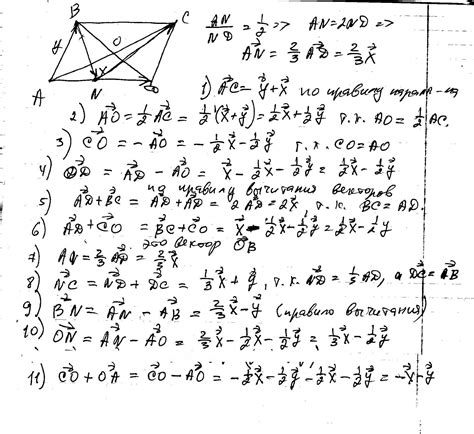 B C
y O
x
A N D
AN/ND = 1/2 => AN = 2ND =>
AN = 2/3 AD = 2/3 x
1) AC = y + x по правилу парал-ма
2) AO = 1/2 AC = 1/2 (x + y) = 1/2 x + 1/2 y т.к. AO = 1/2 AC.
3) CO = -AO = -1/2 x - 1/2 y т.к. CO = AO
4) OD = AD - AO = x - 1/2 x - 1/2 y = 1/2 x - 1/2 y
по правилу вычитания векторов
5) AD + BC = AD + AD = 2AD = 2x т.к. BC = AD.
6) AD + CO = BC + CO = x - 1/2 x - 1/2 y = 1/2 x - 1/2 y
это вектор OB
7) AN = 2/3 AD = 2/3 x
8) NC = ND + DC = 1/3 x + y, т.к. ND = 1/3 AD, а DC = AB
9) BN = AN - AB = 2/3 x - y (правило вычитания)
10) ON = AN - AO = 2/3 x - 1/2 x - 1/2 y = 1/3 x - 1/2 y
11) CO + OA = CO - AO = -1/2 x - 1/2 y - 1/2 x - 1/2 y = -x - y